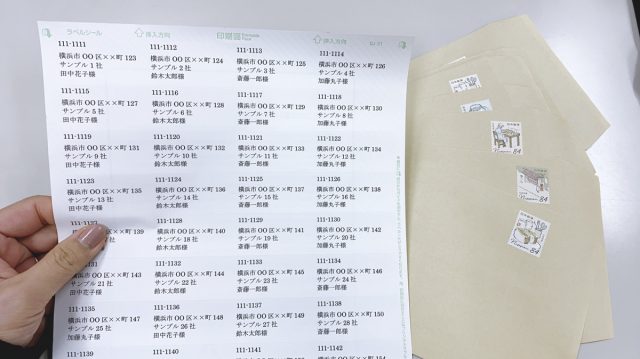 ラベルシール
挿入方向
印刷面
Printable
Face
挿入方向
111-1111
横浜市OO区××町 123
サンプル 1 社
田中花子様
111-1112
横浜市OO区××町 124
サンプル 2 社
鈴木太郎様
111-1113
横浜市OO区××町 125
サンプル 3 社
斎藤一郎様
111-1114
横浜市OO区××町 126
サンプル 4 社
加藤丸子様
111-1115
横浜市OO区××町 127
サンプル 5 社
田中花子様
111-1116
横浜市OO区××町 128
サンプル 6 社
鈴木太郎様
111-1117
横浜市OO区××町 129
サンプル 7 社
斎藤一郎様
111-1118
横浜市OO区××町 130
サンプル 8 社
加藤丸子様
111-1119
横浜市OO区××町 131
サンプル 9 社
田中花子様
111-1120
横浜市OO区××町 132
サンプル 10 社
鈴木太郎様
111-1121
横浜市OO区××町 133
サンプル 11 社
斎藤一郎様
111-1122
横浜市OO区××町 134
サンプル 12 社
加藤丸子様
111-1123
横浜市OO区××町 135
サンプル 13 社
田中花子様
111-1124
横浜市OO区××町 136
サンプル 14 社
鈴木太郎様
111-1125
横浜市OO区××町 137
サンプル 15 社
斎藤一郎様
111-1126
横浜市OO区××町 138
サンプル 16 社
加藤丸子様
111-1127
町 139
111-1128
横浜市OO区××町 140
サンプル 18 社
鈴木太郎様
111-1129
横浜市OO区××町 141
サンプル 19 社
斎藤一郎様
111-1130
横浜市OO区××町 142
サンプル 20 社
加藤丸子様
1131
横浜市OO区××町 143
サンプル 21 社
田中花子様
111-1132
横浜市OO区××町 144
サンプル 22 社
鈴木太郎様
111-1133
横浜市OO区××町 145
サンプル 23 社
斎藤一郎様
111-1134
横浜市OO区××町 146
サンプル 24 社
加藤丸子様
111-1135
横浜市OO区××町 147
サンプル 25 社
田中花子様
111-1136
横浜市OO区××町 148
サンプル 26 社
鈴木太郎様
111-1137
横浜市OO区××町 149
サンプル 27 社
斎藤一郎様
111-1138
横浜市OO区××町 150
サンプル 28 社
加藤丸子様
111-1139
111-1140
111-1141
111-1142
84
84
84